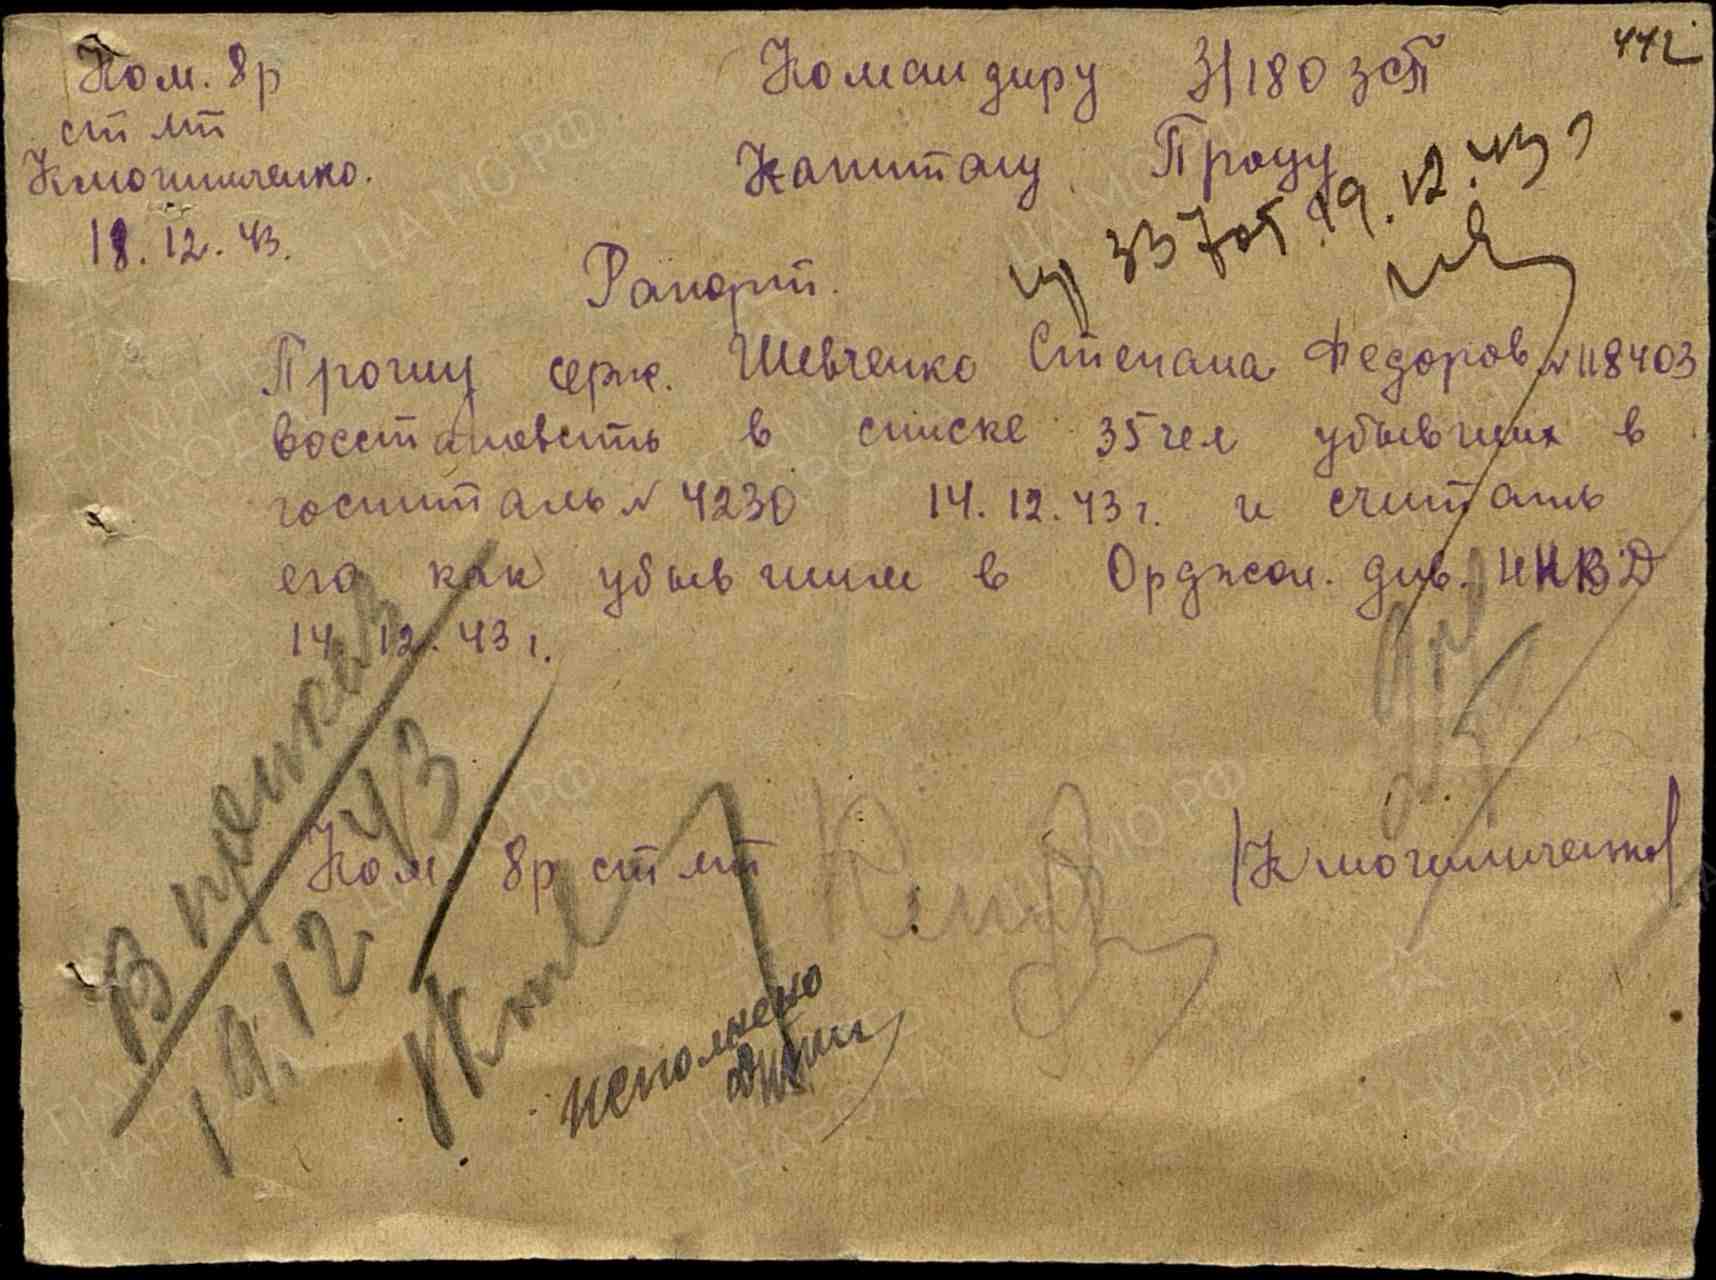 442
Ком. 8р
ст лт
Кмошинченко.
18.12.43.
Командиру 3/180 зсп
Капитану Проуу
337 от 19.12.43 г
Рапорт.
Прошу серж. Шевченко Степана Федоров №118403
восстановить в списке 35 чел убывших в
госпиталь № 4230 14.12.43 г. и считать
его как убывшим в Орджон. див. НКВД
14.12.43 г.
В приказ
19.12.43
Ком 8р ст лт
исполнено